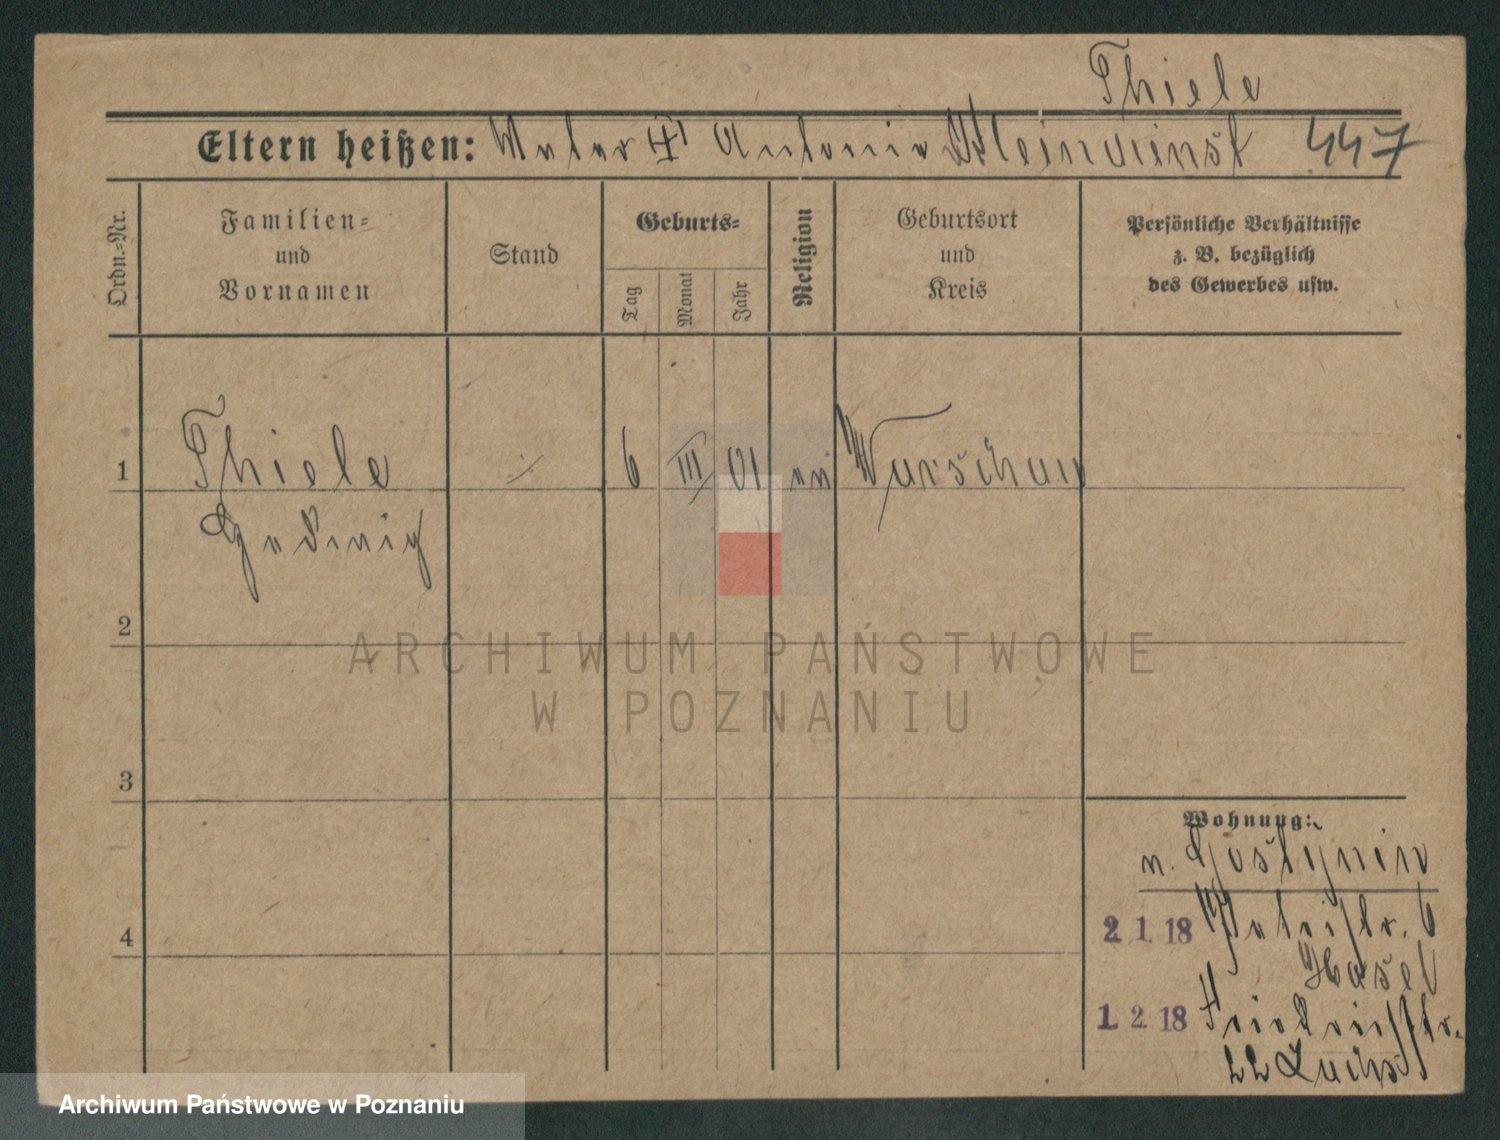 Thiele
Eltern heißen: Vater Antonie Kleinwienst 447
Ordn.-Nr.
Familien-
und
Vornamen
Stand
Geburts-
Tag
Monat
Jahr
Religion
Geburtsort
und
Kreis
Persönliche Verhältnisse
z. B. bezüglich
des Gewerbes usw.
1 Thiele 6 III 01 ev Warschau
Hedwig
2
ARCHIWUM PAŃSTWOWE
W POZNANIU
3
Wohnung:
n. Gostynin
4
2 1. 18 Petristr. 6
Hasel
1. 2 18 Friedrichstr.
22 Luchs
Archiwum Państwowe w Poznaniu